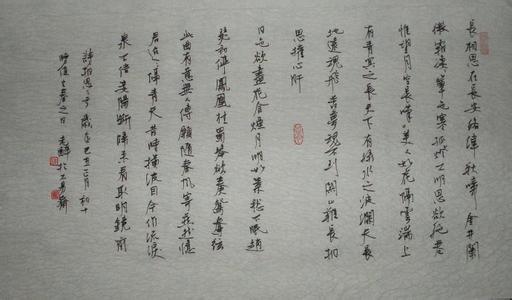 長相思在長安絡緯秋啼金井闌
微霜淒淒簟色寒孤灯不明思欲絕卷
帷望月空長嘆美人如花隔雲端上
有青冥之長天下有綠水之波瀾天長
地遠魂飛苦夢魂不到關山難長相
思摧心肝
日色欲盡花含煙月明如素愁不眠趙
瑟初停鳳凰柱蜀琴欲奏鴛鴦弦
此曲有意無人傳願隨春風寄燕然憶
君迢迢隔青天昔時橫波目今作流淚
泉不信妾腸斷歸來看取明鏡前
詩相思二章歲在己丑正月初十
時值立春之日